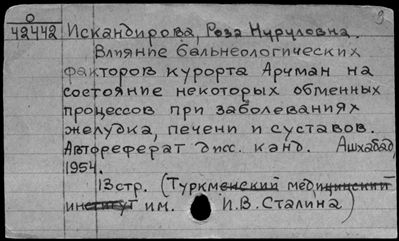 О
42442
Искандирова, Роза Нуруловна.
Влияние бальнеологических
факторов курорта Арчман на
состояние некоторых обменных
процессов при заболеваниях
желудка, печени и суставов.
Автореферат дисс. канд. Ашхабад,
1954.
13стр. (Туркменский медицинский
институт им. И.В.Сталина)